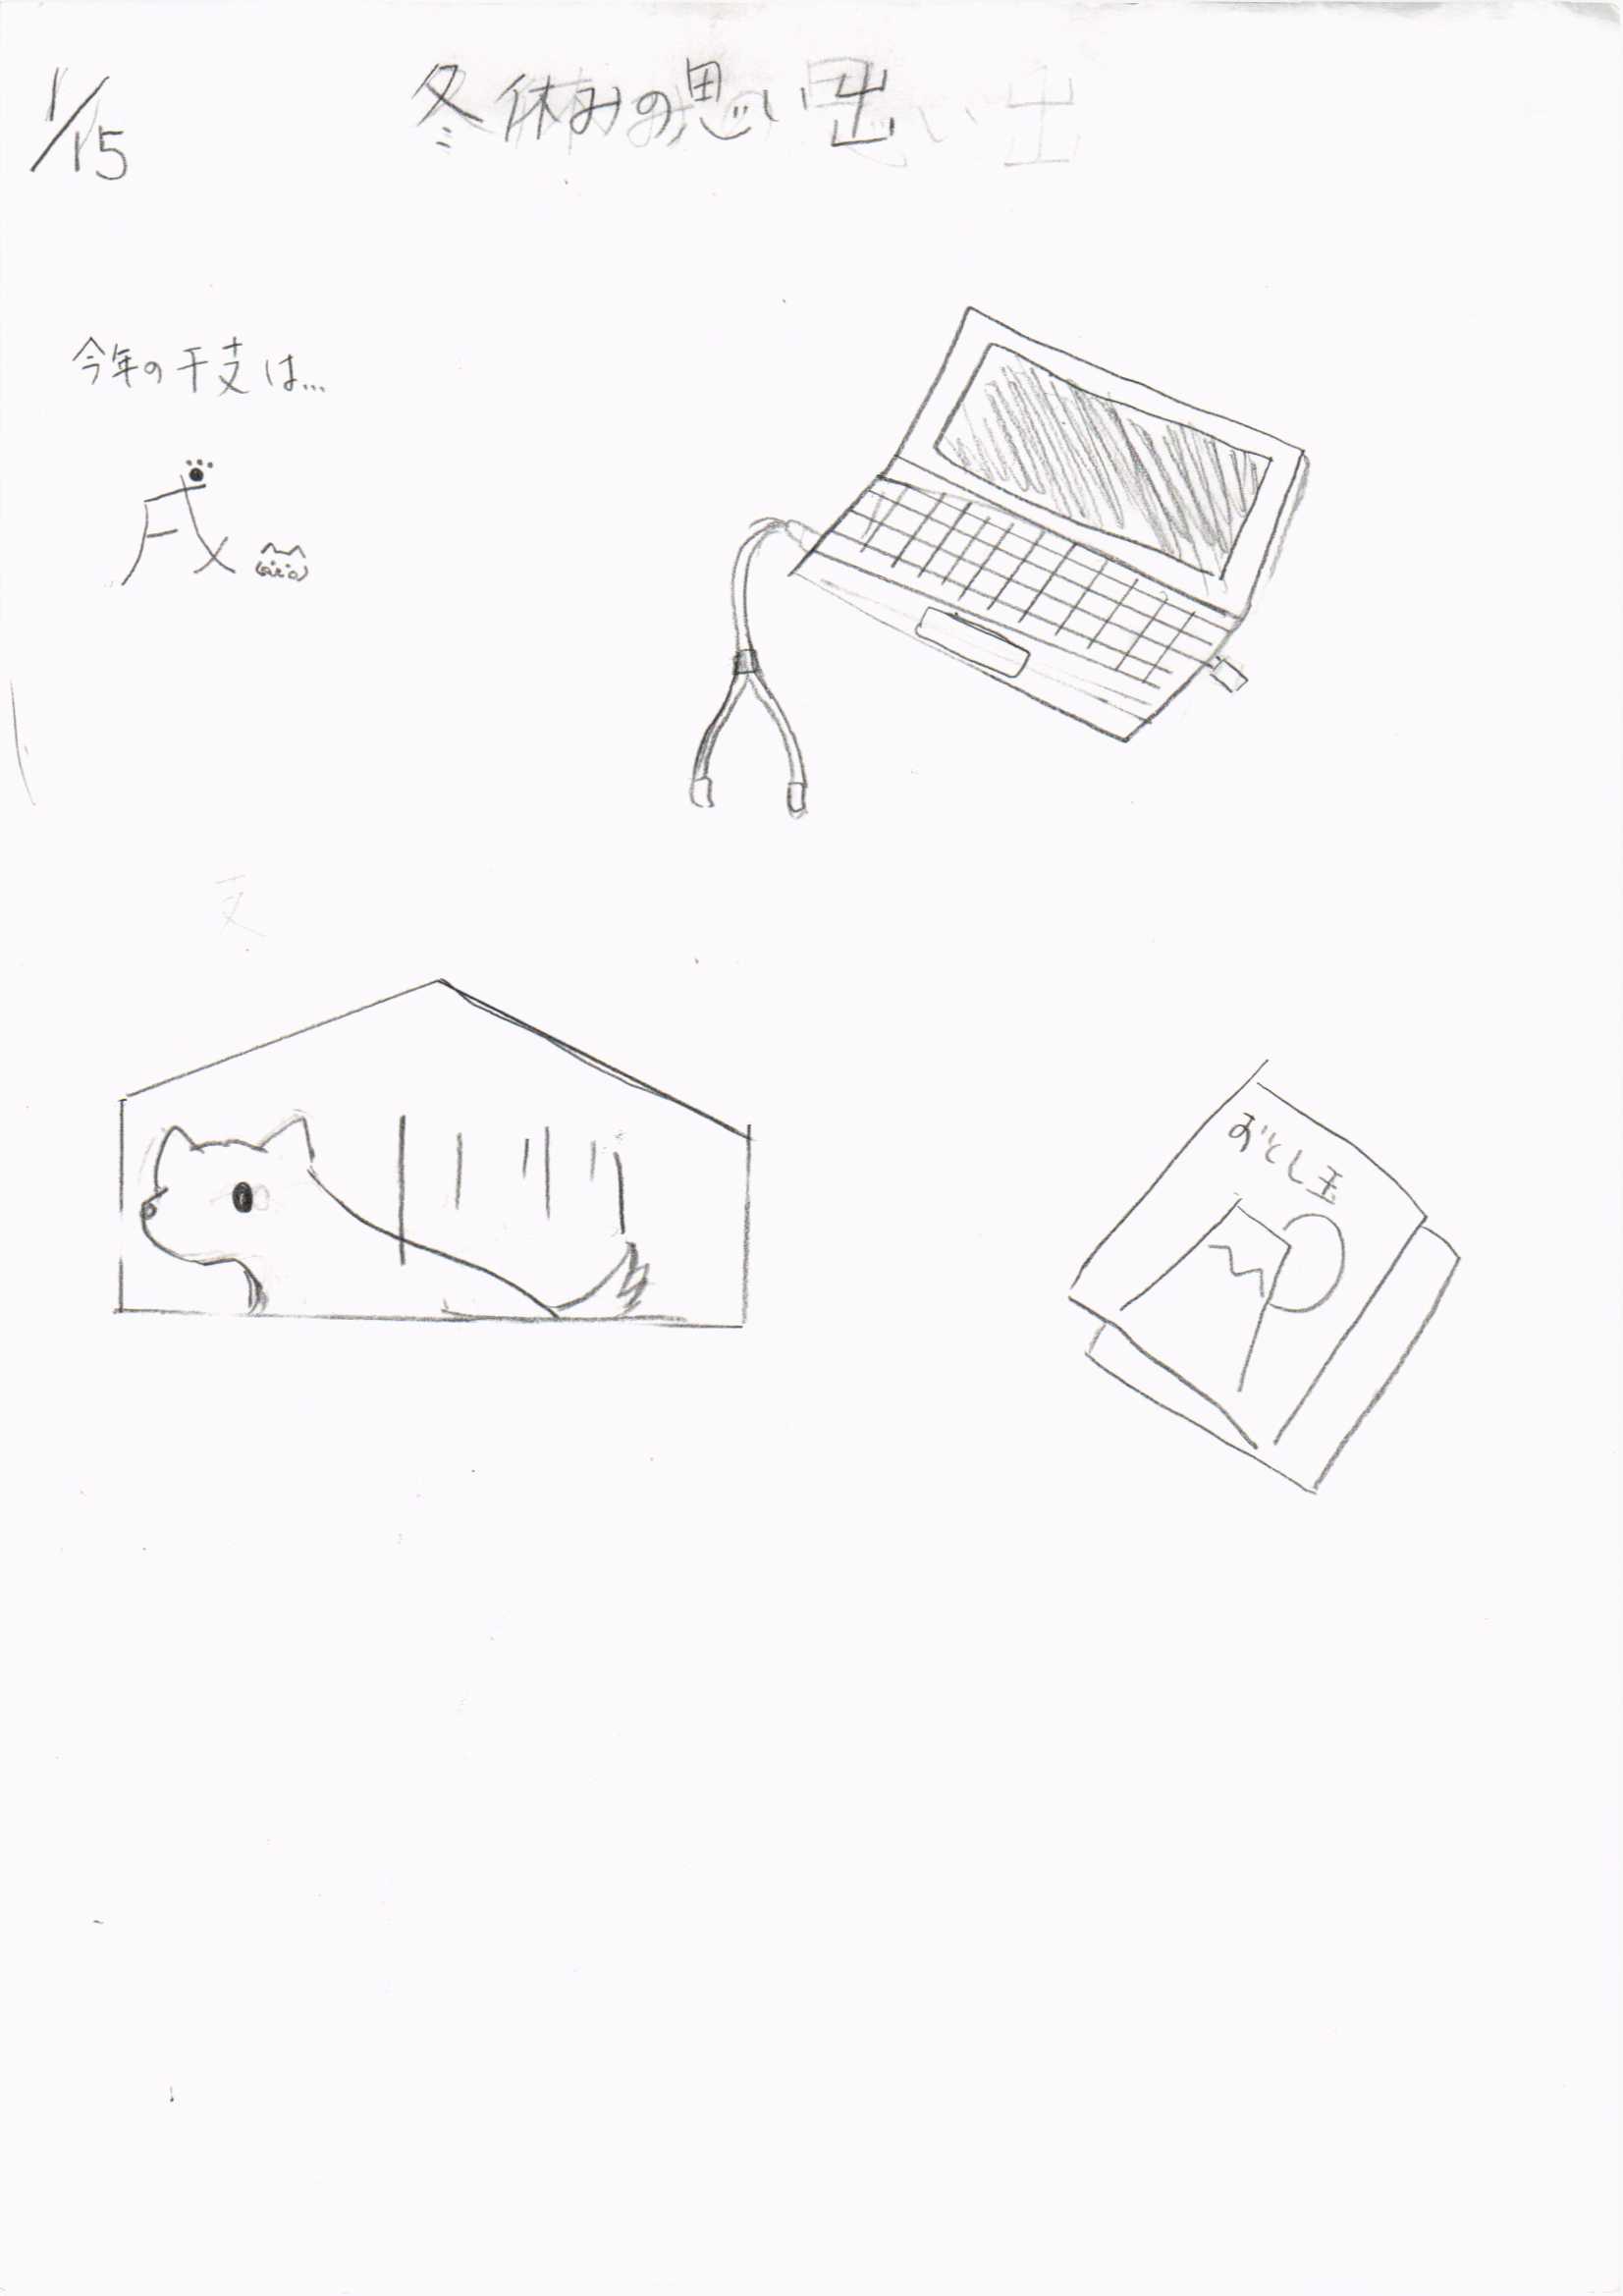 1/15
冬休みの思い出
今年の干支は...
戌
おとし玉